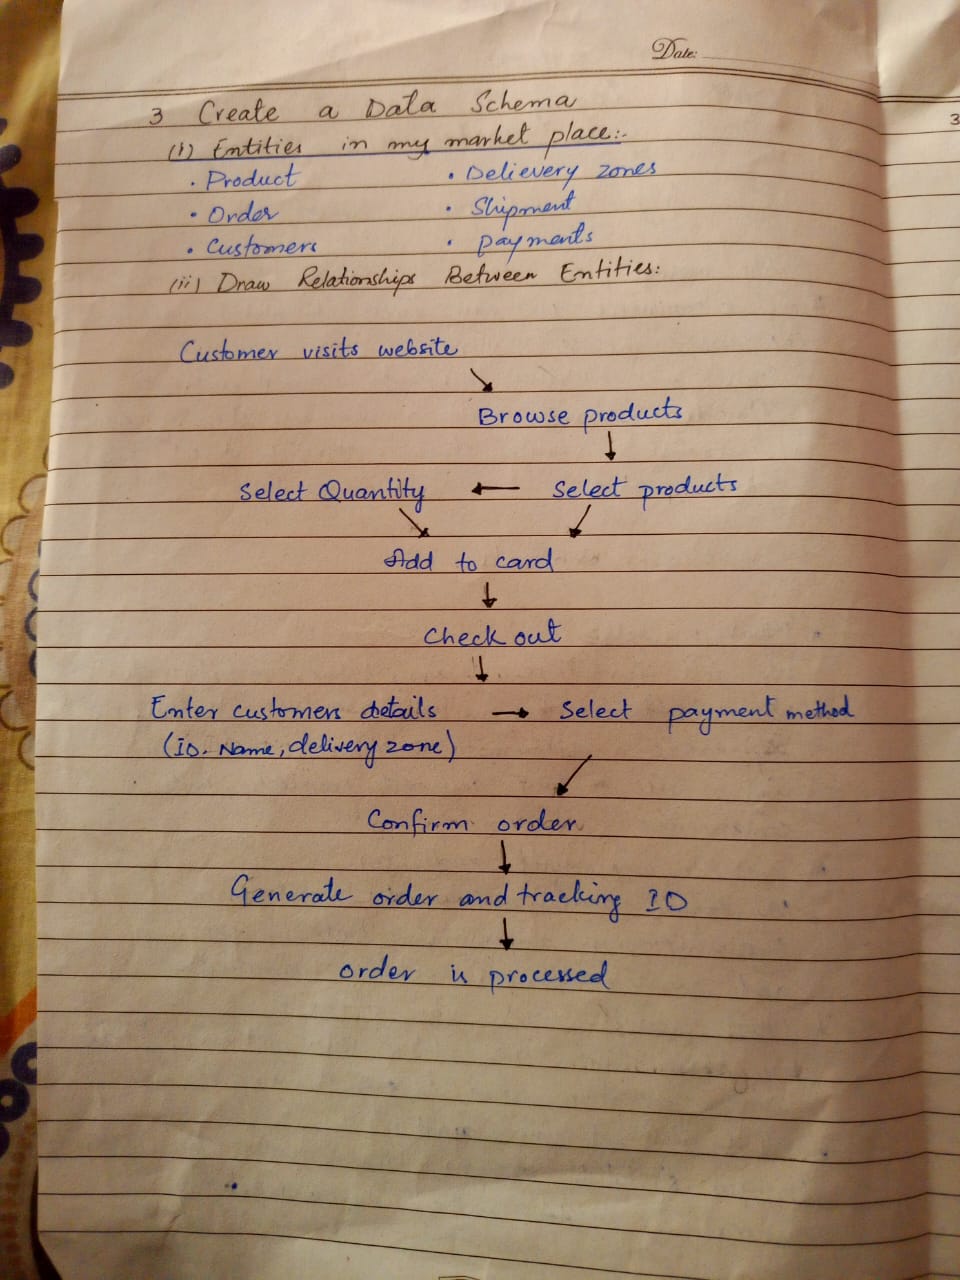 Date:
3 Create a Data Schema
(i) Entities in my market place:-
• Product • Delievery zones
• Order • Shipment
• Customers • payments
(ii) Draw Relationships Between Entities:
Customer visits website
Browse products
Select Quantity ← Select products
Add to card
Check out
Enter customers details → Select payment method
(ID. Name, delivery zone)
Confirm order
Generate order and tracking ID
order is processed
3